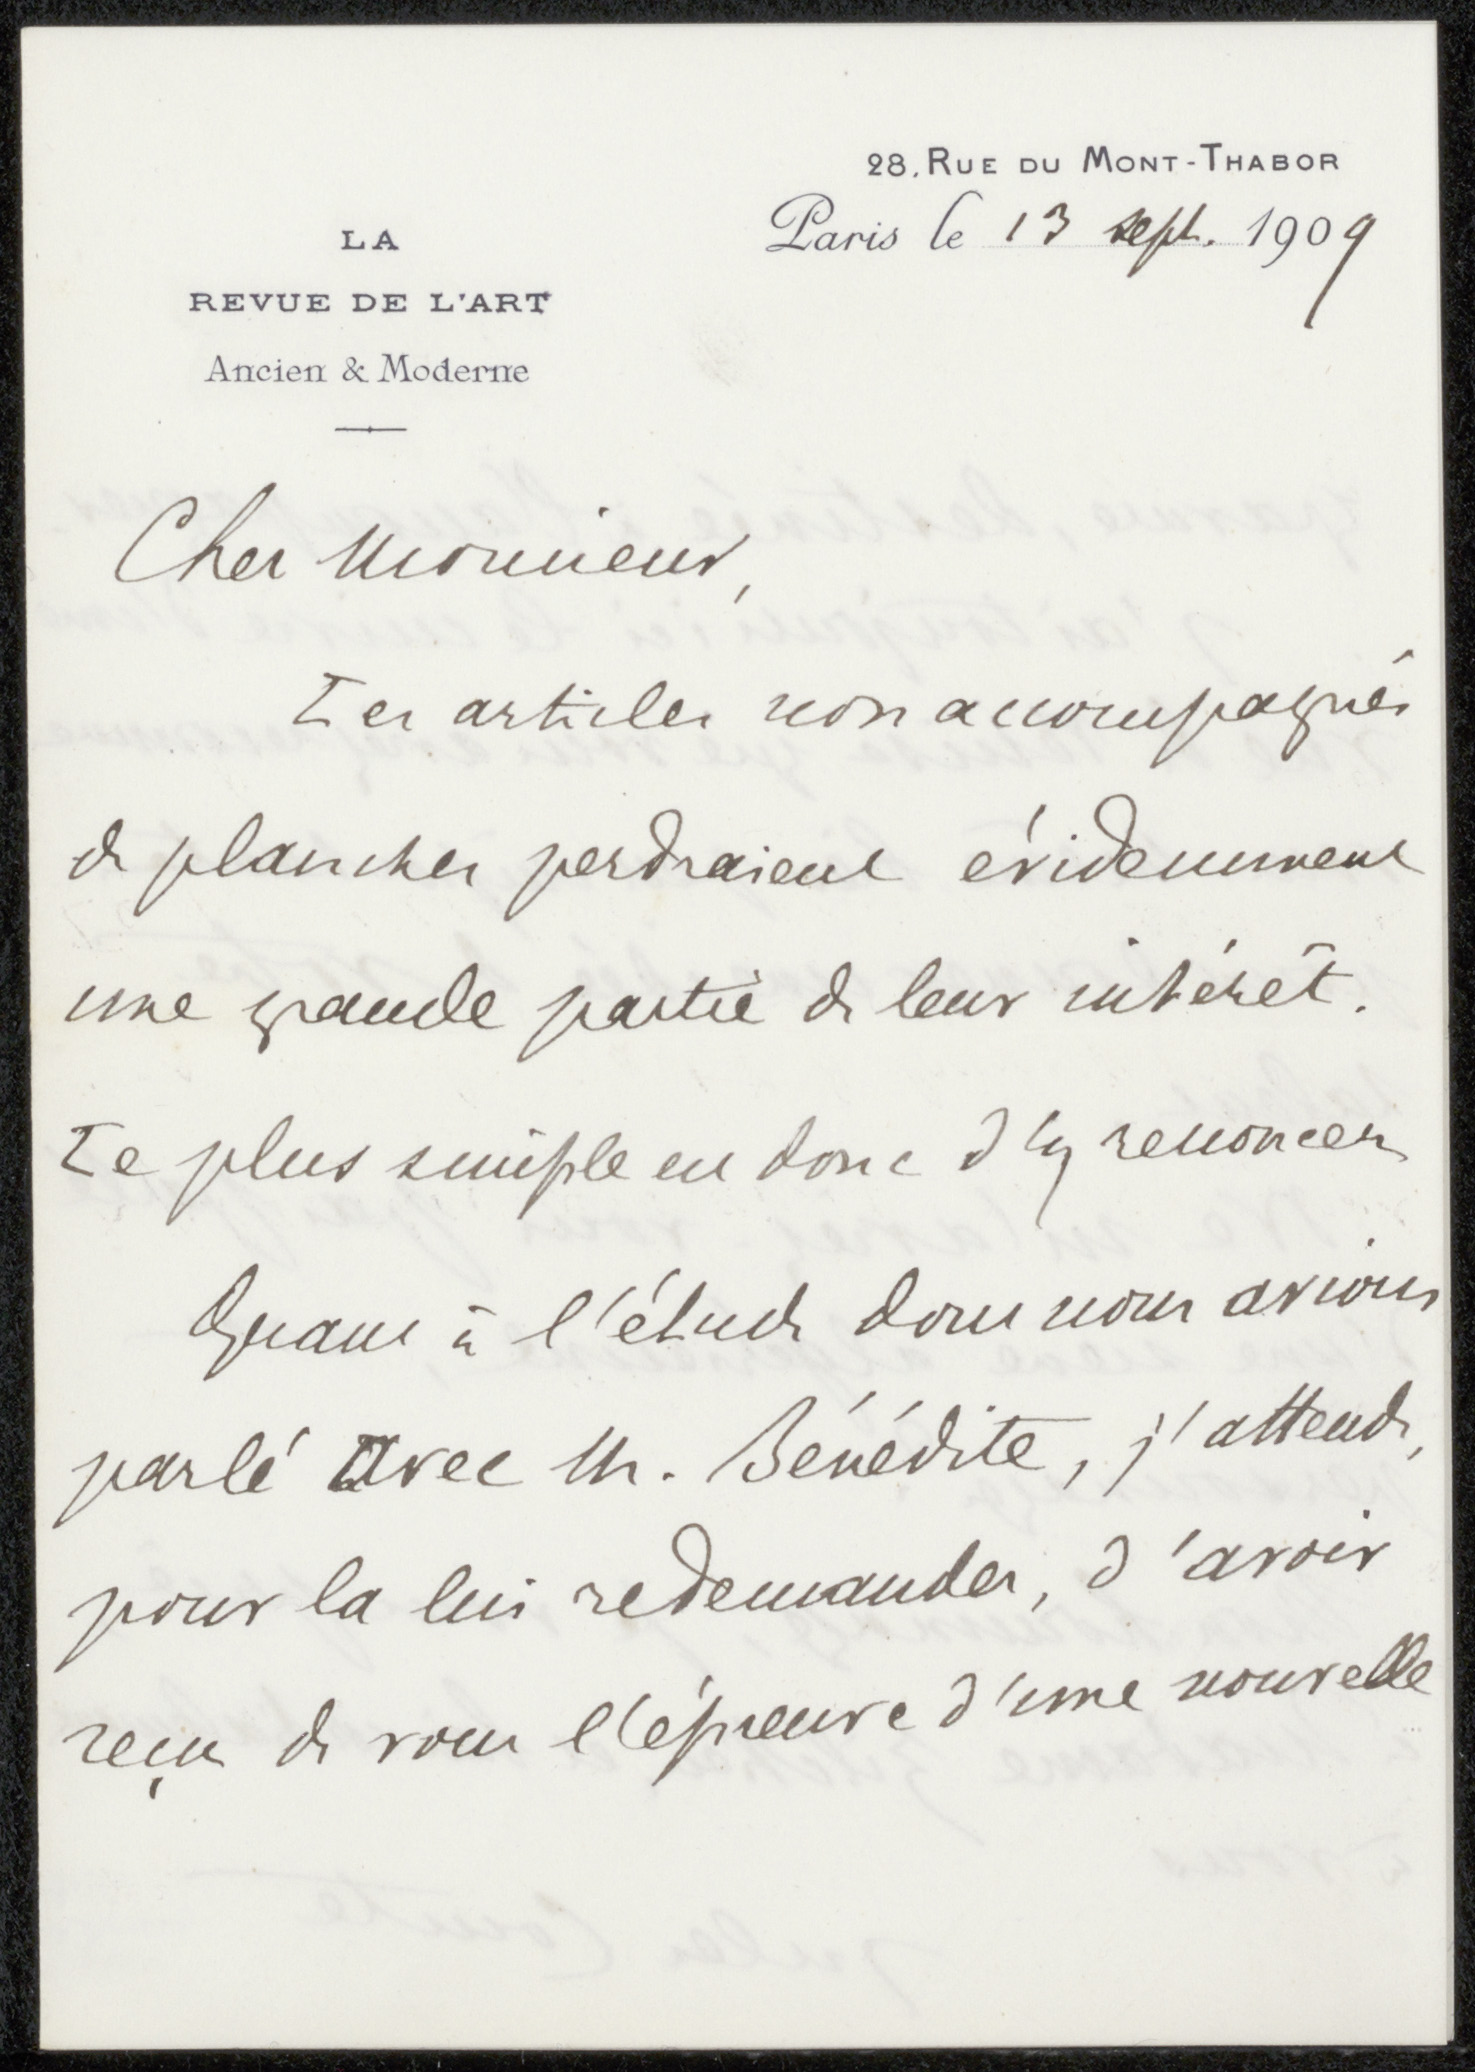 28. RUE DU MONT-THABOR
Paris le 13 sept. 1909
LA
REVUE DE L'ART
Ancien & Moderne
Cher Monsieur,
Les articles non accompagnés
de planches perdraient évidemment
une grande partie de leur intérêt.
Le plus simple est donc d'y renoncer
Quant à l'étude dont nous avions
parlé avec M. Bénédite, j'attends,
pour la lui redemander, d'avoir
reçu de vous l'épreuve d'une nouvelle